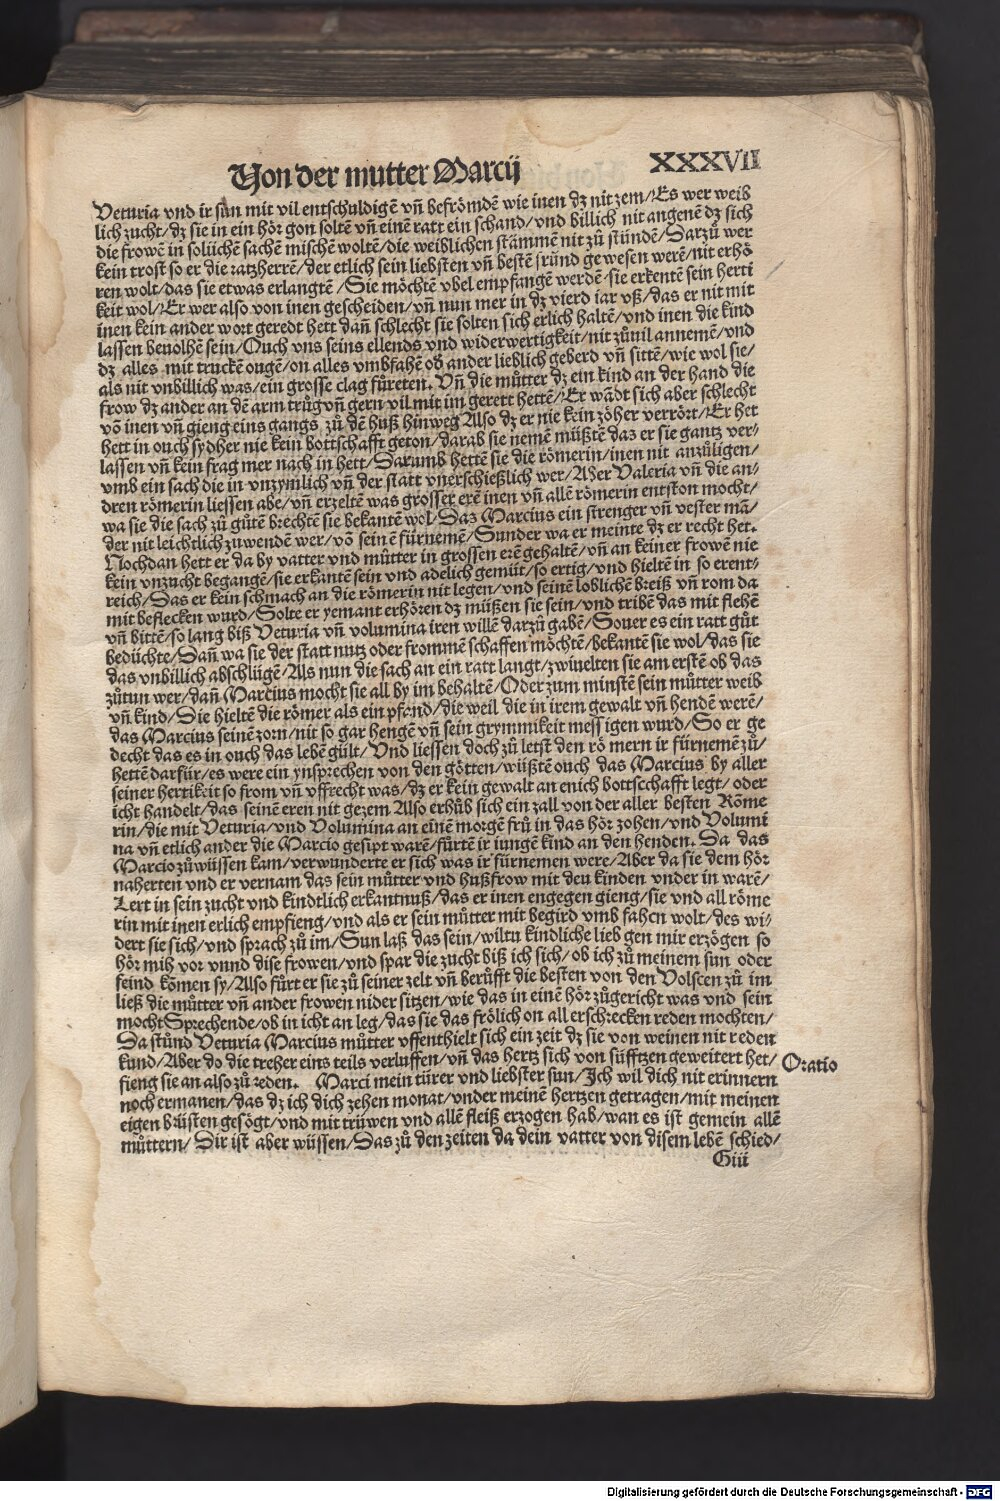 Von der mutter Marcij
XXXVII
Veturia vnd ir sun mit vil entschuldigē vñ befrömdē wie inen dz nit zem/Es wer weib
lich zucht/dz sie in ein hör gon soltē vñ einē ratt ein schand/vnd billich nit angenē dz sich
die frowē in solüchē sachē mischē woltē/die weiblichen stämmē nit zů stündē/Darzů wer
kein trost so er die ratzherrē/der etlich sein liebsten vñ bestē fründ gewesen werē/nit erhö
ren wolt/das sie etwas erlangtē/Sie möchtē vbel empfangē werdē/sie erkentē sein herti
keit wol/Er wer also von inen gescheiden/vñ nun mer in dz vierd iar vß/das er nit mit
inen kein ander wort geredt hett dañ schlecht sie solten sich erlich haltē/vnd inen die kind
lassen beuolhē sein/Ouch vns seins ellends vnd widerwertigkeit/nit zůuil annemē/vnd
dz alles mit truckē ougē/on alles vmbfahē od ander lieblich geberd vñ sittē/wie wol sie/
als nit vnbillich was/ein grosse clag fůreten. Vñ die můtter dz ein kind an der hand die
frow dz ander an dē arm trůg vñ gern vil mit im gerett hettē/Er wādt sich aber schlecht
vō inen vñ gieng eins gangs zů dē huß hinweg Also dz er nie kein zöher verrört/Er het
hett in ouch sydher nie kein bottschafft geton/darab sie nemē müßtē das er sie gantz ver/
lassen vñ kein frag mer nach in hett/Darumb hettē sie die römerin/inen nit anzůligen/
vmb ein sach die in vnzymlich vñ der statt vnerschießlich wer/Aber Valeria vñ die an/
dren römerin liessen abe/vñ erzeltē was grosser erē inen vñ allē römerin entston mocht/
wa sie die sach zů gůtē brechtē sie bekantē wol/Das Marcius ein strenger vñ vester mā/
der nit leichtlich zuwendē wer/vō seinē fürnemē/Sunder wa er meinte dz er recht het.
Nochdan hett er da by vatter vnd můtter in grossen erē gehaltē/vñ an keiner frowē nie
kein vnzucht begangē/sie erkantē sein vnd adelich gemüt/so ertig/vnd hieltē in so erent/
reich/Das er kein schmach an die römerin nit legen/vnd seinē loblichē breiß vñ rom da
mit beflecken wurd/Solte er yemant erhören dz müßen sie sein/vnd tribē das mit flehē
vñ bittē/so lang biß Veturia vñ volumina iren willē darzů gabē/Souer es ein ratt gůt
bedüchte/Dañ wa sie der statt nutz oder frommē schaffen möchtē/bekantē sie wol/das sie
das vnbillich abschlügē/Als nun die sach an ein ratt langt/zwiueltē sie am erstē ob das
zůtun wer/dañ Marcius mocht sie all by im behaltē/Oder zum minstē sein můtter weib
vñ kind/Die hieltē die römer als ein pfand/die weil die in irem gewalt vñ hendē werē/
das Marcius seinē zorn/nit so gar hengē vñ sein grymmikeit messigen wurd/So er ge
decht das es in ouch das lebē gült/Vnd liessen doch zů letst den römern ir fürnemē zů/
hettē darfür/es were ein ynsprechen von den götten/wüßtē ouch das Marcius by aller
seiner hertikeit so from vñ vffrecht was/dz er kein gewalt an enich bottscchafft legt/oder
icht handelt/das seinē eren nit gezem Also erhůb sich ein zall von der aller besten Röme
rin/die mit Veturia/vnd Volumina an einē morgē frů in das hör zohen/vnd Volumi
na vñ etlich ander die Marcio gesipt warē/fůrtē ir iungē kind an den henden. Da das
Marcio zůwüssen kam/verwunderte er sich was ir fürnemen were/Aber da sie dem hör
naherten vnd er vernam das sein můtter vnd hußfrow mit deu kinden vnder in warē/
Lert in sein zucht vnd kindtlich erkantnuß/das er inen engegen gieng/sie vnd all röme
rin mit inen erlich empfieng/vnd als er sein můtter mit begird vmb fahen wolt/des wi/
dert sie sich/vnd sprach zů im/Sun laß das sein/wiltu kindliche lieb gen mir erzögen so
hör mih vor vnnd dise frowen/vnd spar die zucht biß ich sich/ob ich zů meinem sun oder
feind kōmen sy/Also fůrt er sie zů seiner zelt vñ berůfft die besten von den Volscen zů im
ließ die můtter vñ ander frowen nider sitzen/wie das in einē hör zůgericht was vnd sein
mocht Sprechende/ob in icht an leg/das sie das frölich on all erschrecken reden mochten/
Da stůnd Veturia Marcius můtter vffenthielt sich ein zeit dz sie von weinen nit reden
kund/Aber do die treher eins teils verluffen/vñ das hertz sich von süfftzen geweitert het/
Oratio
fieng sie an also zů reden. Marci mein türer vnd liebster sun/Ich wil dich nit erinnern
noch ermanen/das dz ich dich zehen monat/vnder meinē hertzen getragen/mit meinen
eigen brüsten gesögt/vnd mit trüwen vnd allē fleiß erzogen hab/wan es ist gemein allē
můttern/Dir ist aber wüssen/Das zů den zeiten da dein vatter von disem lebē schied/
Giii
Digitalisierung gefördert durch die Deutsche Forschungsgemeinschaft - DFG